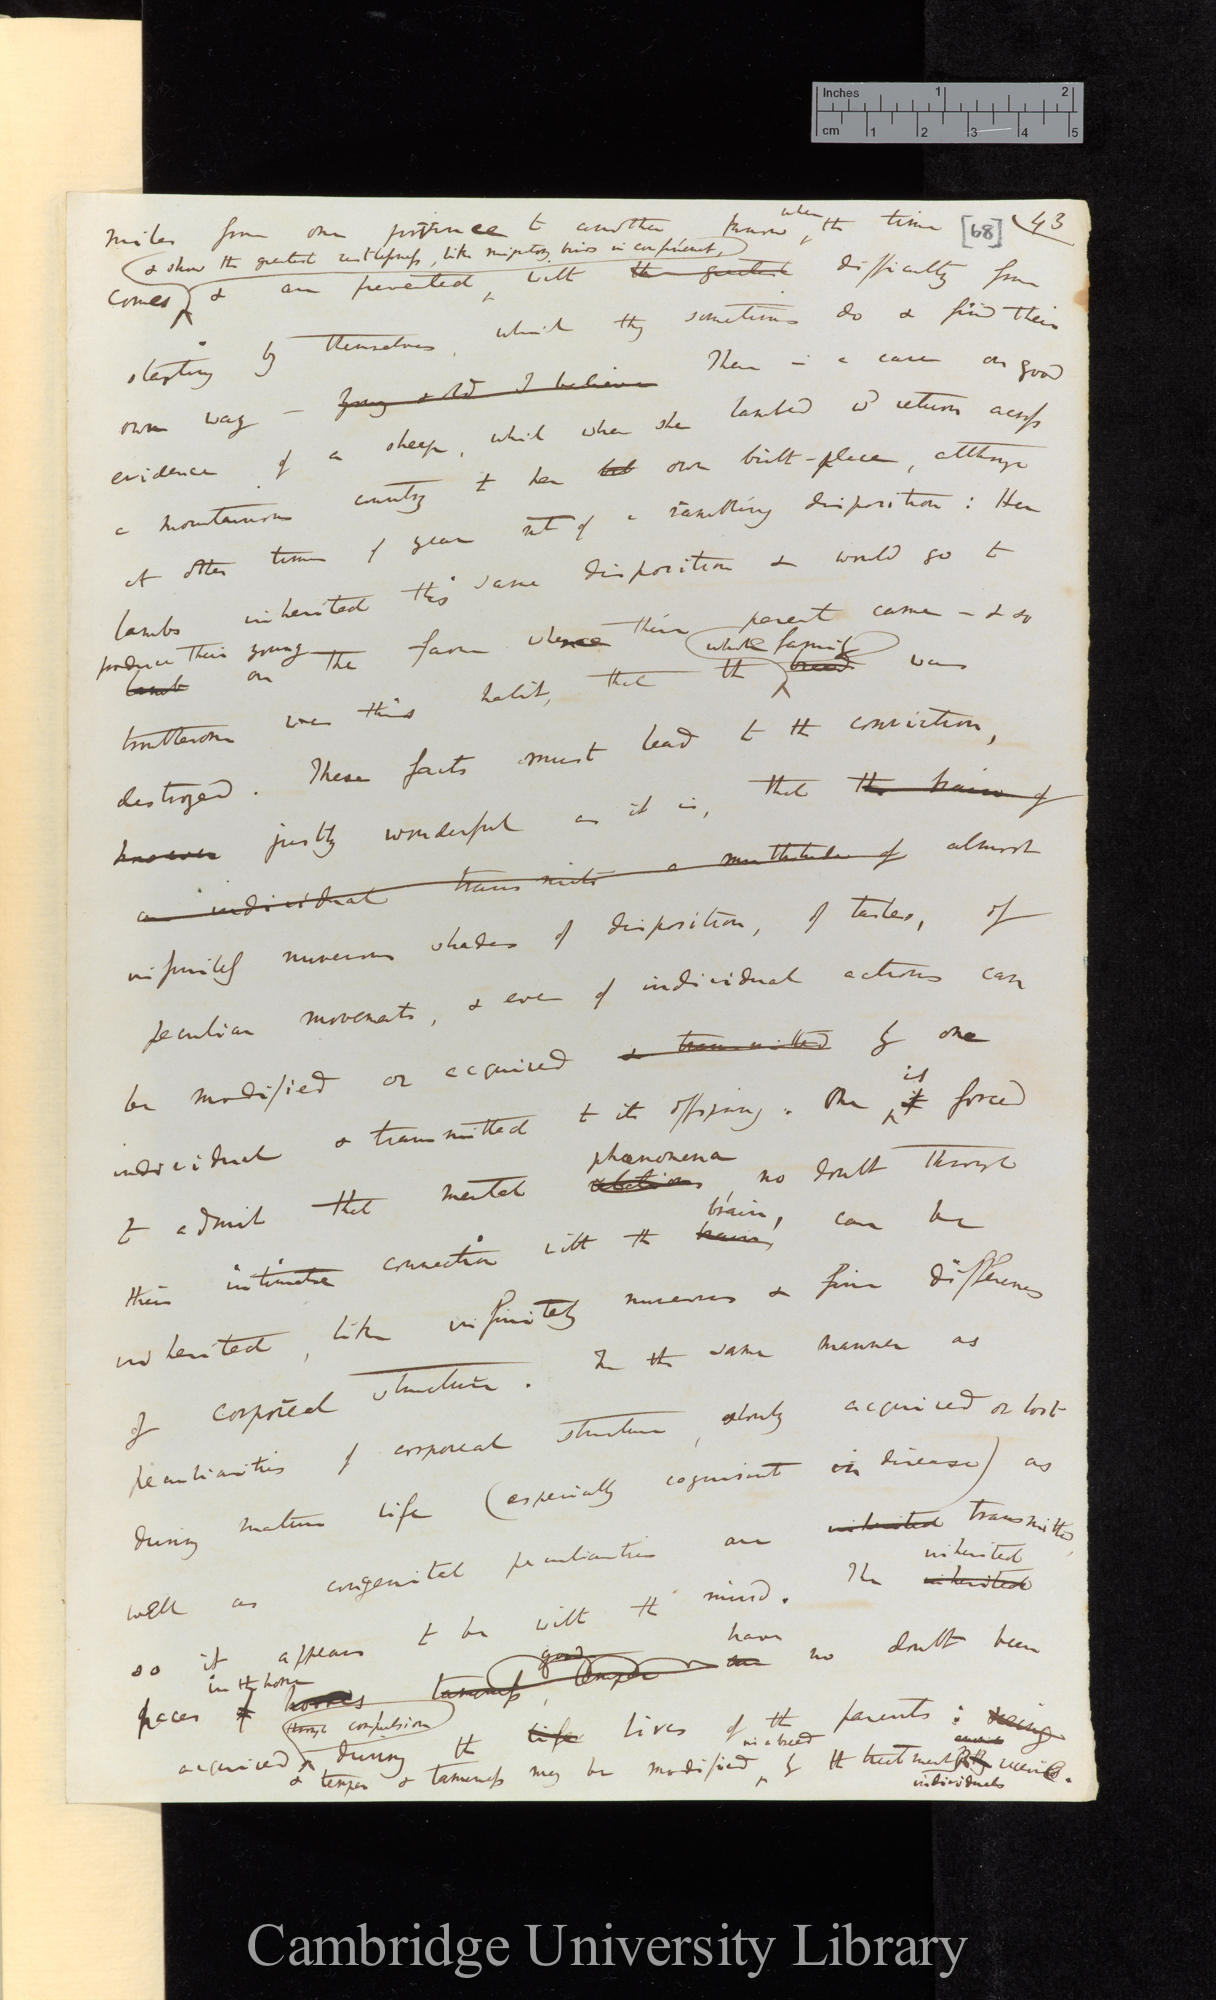 Inches 1 2
cm 1 2 3 4 5
[68] 43
miles from one province to another know when the time
& show the greatest restlessness, like migratory birds in confinement,
comes & are prevented with the greatest difficulty from
starting by themselves, which they sometimes do & find their
own way – young & old I believe There is a case on good
evidence of a sheep, which when she lambed wd return across
a mountainous country to her own birth-place, although
at other times of year not of a rambling disposition: Her
lambs inherited this same disposition & would go to
produce their young
lamb on the farm whence their parent came – & so
whole family
troublesome was this habit, that the breed was
destroyed. These facts must lead to the conviction,
however justly wonderful as it is, that the brain of
an individual transmits a multitude of almost
infinitely numerous shades of disposition, of tastes, of
peculiar movements, & even of individual actions can
be modified or acquired & transmitted by one
is
individual & transmitted to its offspring. One it forced
phænomena
to admit that mental relations, no doubt through
brain,
their intimate connection with the brain, can be
inherited, like infinitely numerous & fine differences
of corporeal structure. In the same manner as
peculiarities of corporeal structure, slowly acquired or lost
during mature life (especially cognisant in disease) as
well as congenital peculiarities are inherited transmitted,
inherited
so it appears to be with the mind. The inherited
in the horse good have
paces of horses tameness, temper are no doubt been
through compulsion
acquired during the life lives of the parents: seeing
in a breed
& temper & tameness may be modified by the treatment the receive.
individuals
Cambridge University Library